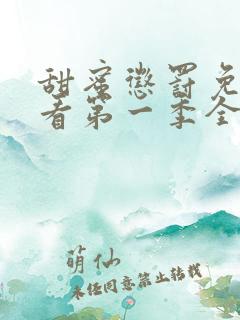 甜蜜惩罚免
看第一季全
萌仙
未经同意禁止转载